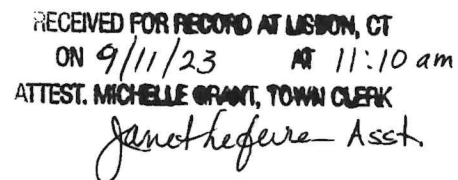 RECEIVED FOR RECORD AT LISBON, CT
ON 9/11/23 AT 11:10 am
ATTEST. MICHELLE GRANT, TOWN CLERK
Janet Lefevre Asst.